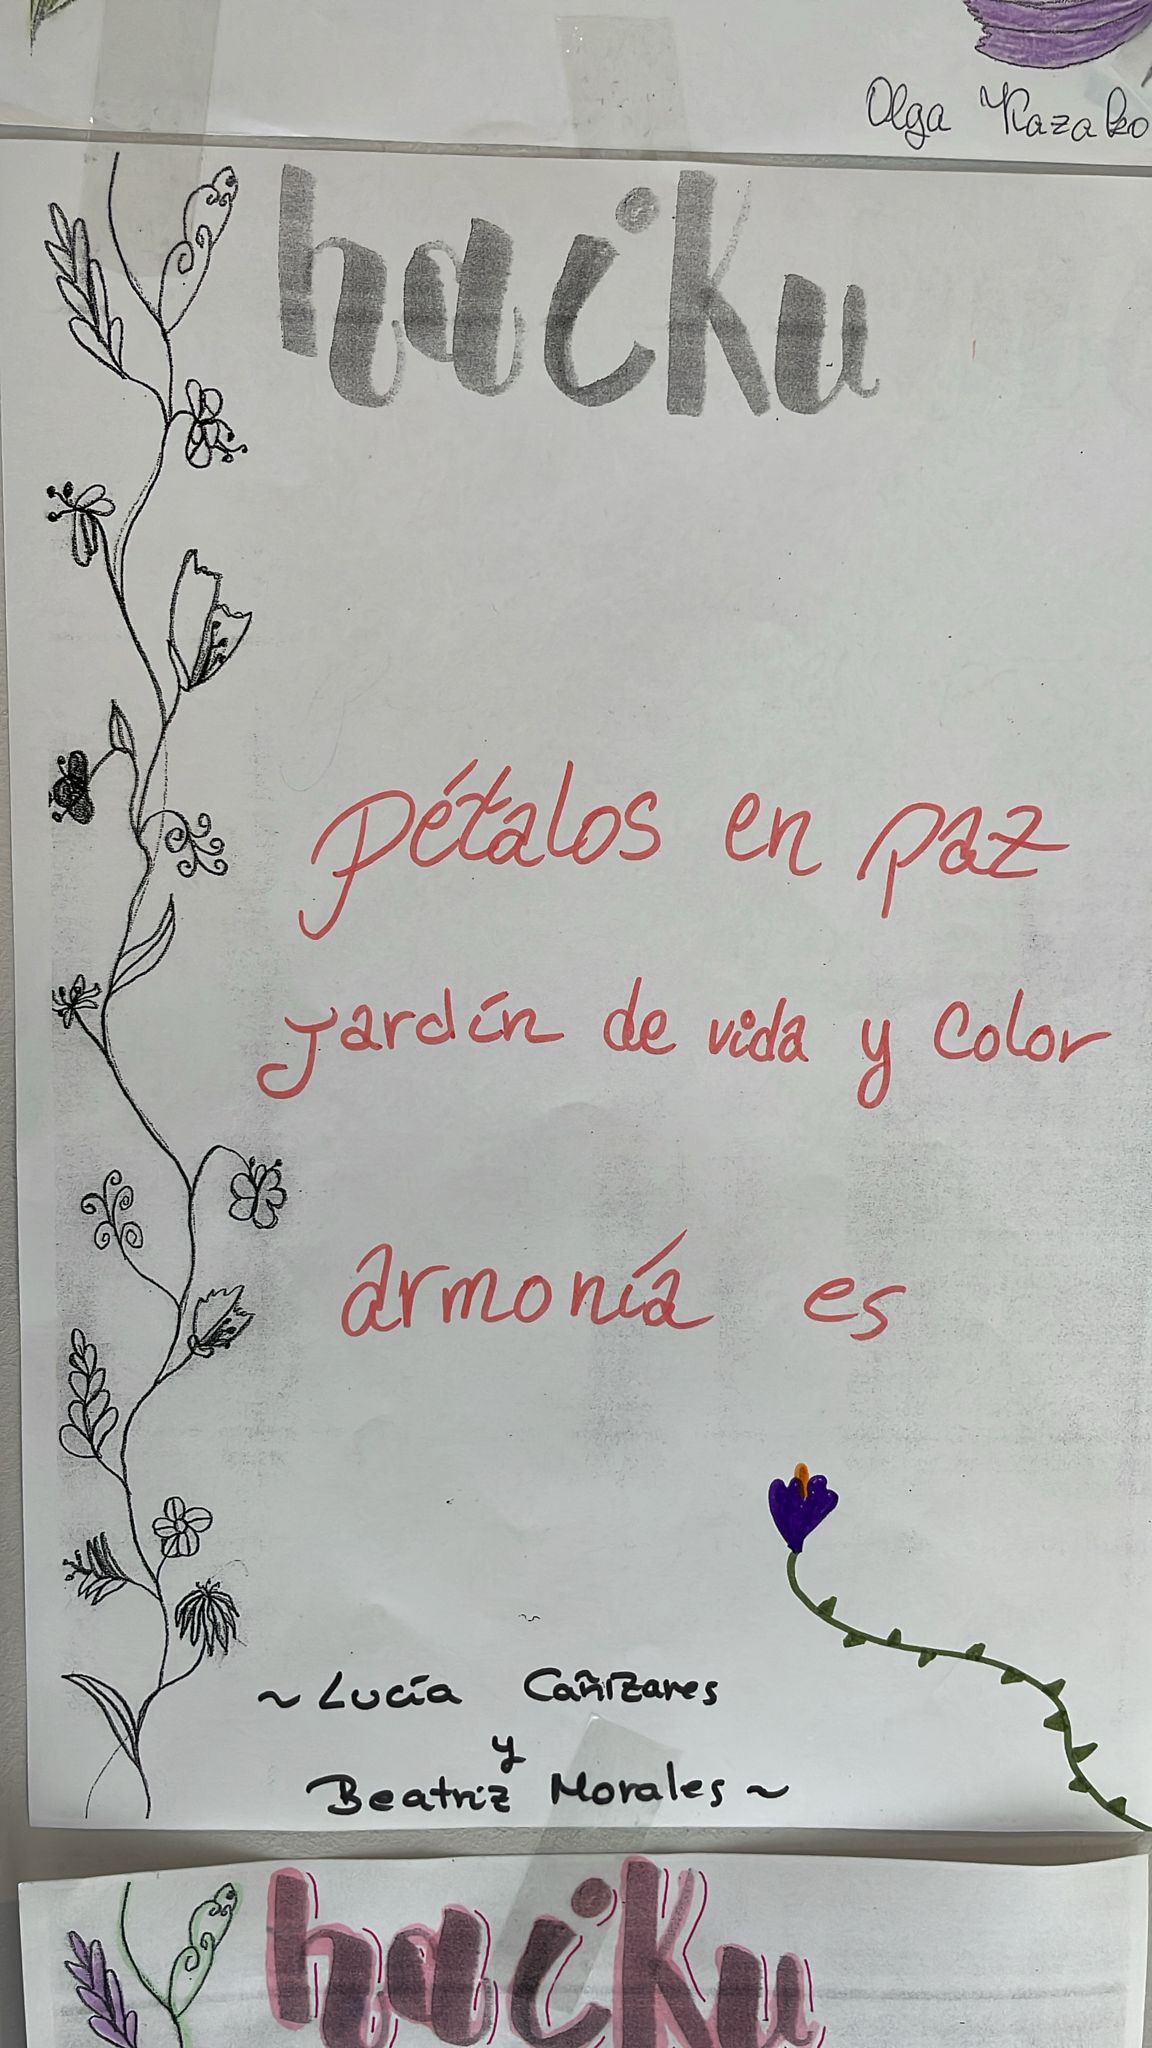 Olga Kazako
haiku
Pétalos en paz
jardín de vida y color
armonía es
~ Lucía Cañizares
y
Beatriz Morales ~
haiku